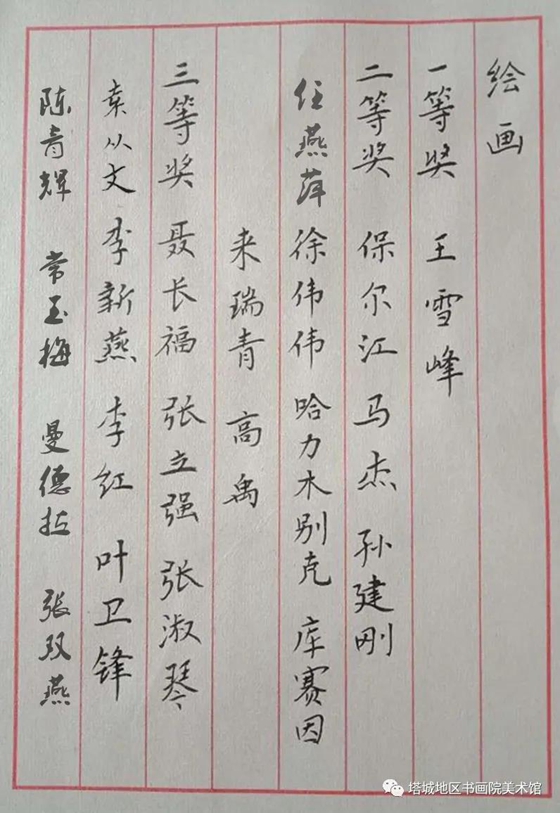 绘画
一等奖 王雪峰
二等奖 保尔江 马杰 孙建刚
任燕萍 徐伟伟 哈力木别克 库赛因
来瑞青 高禹
三等奖 聂长福 张立强 张淑琴
袁从文 李新燕 李红 叶卫锋
陈青辉 常玉梅 曼德拉 张双燕
塔城地区书画院美术馆